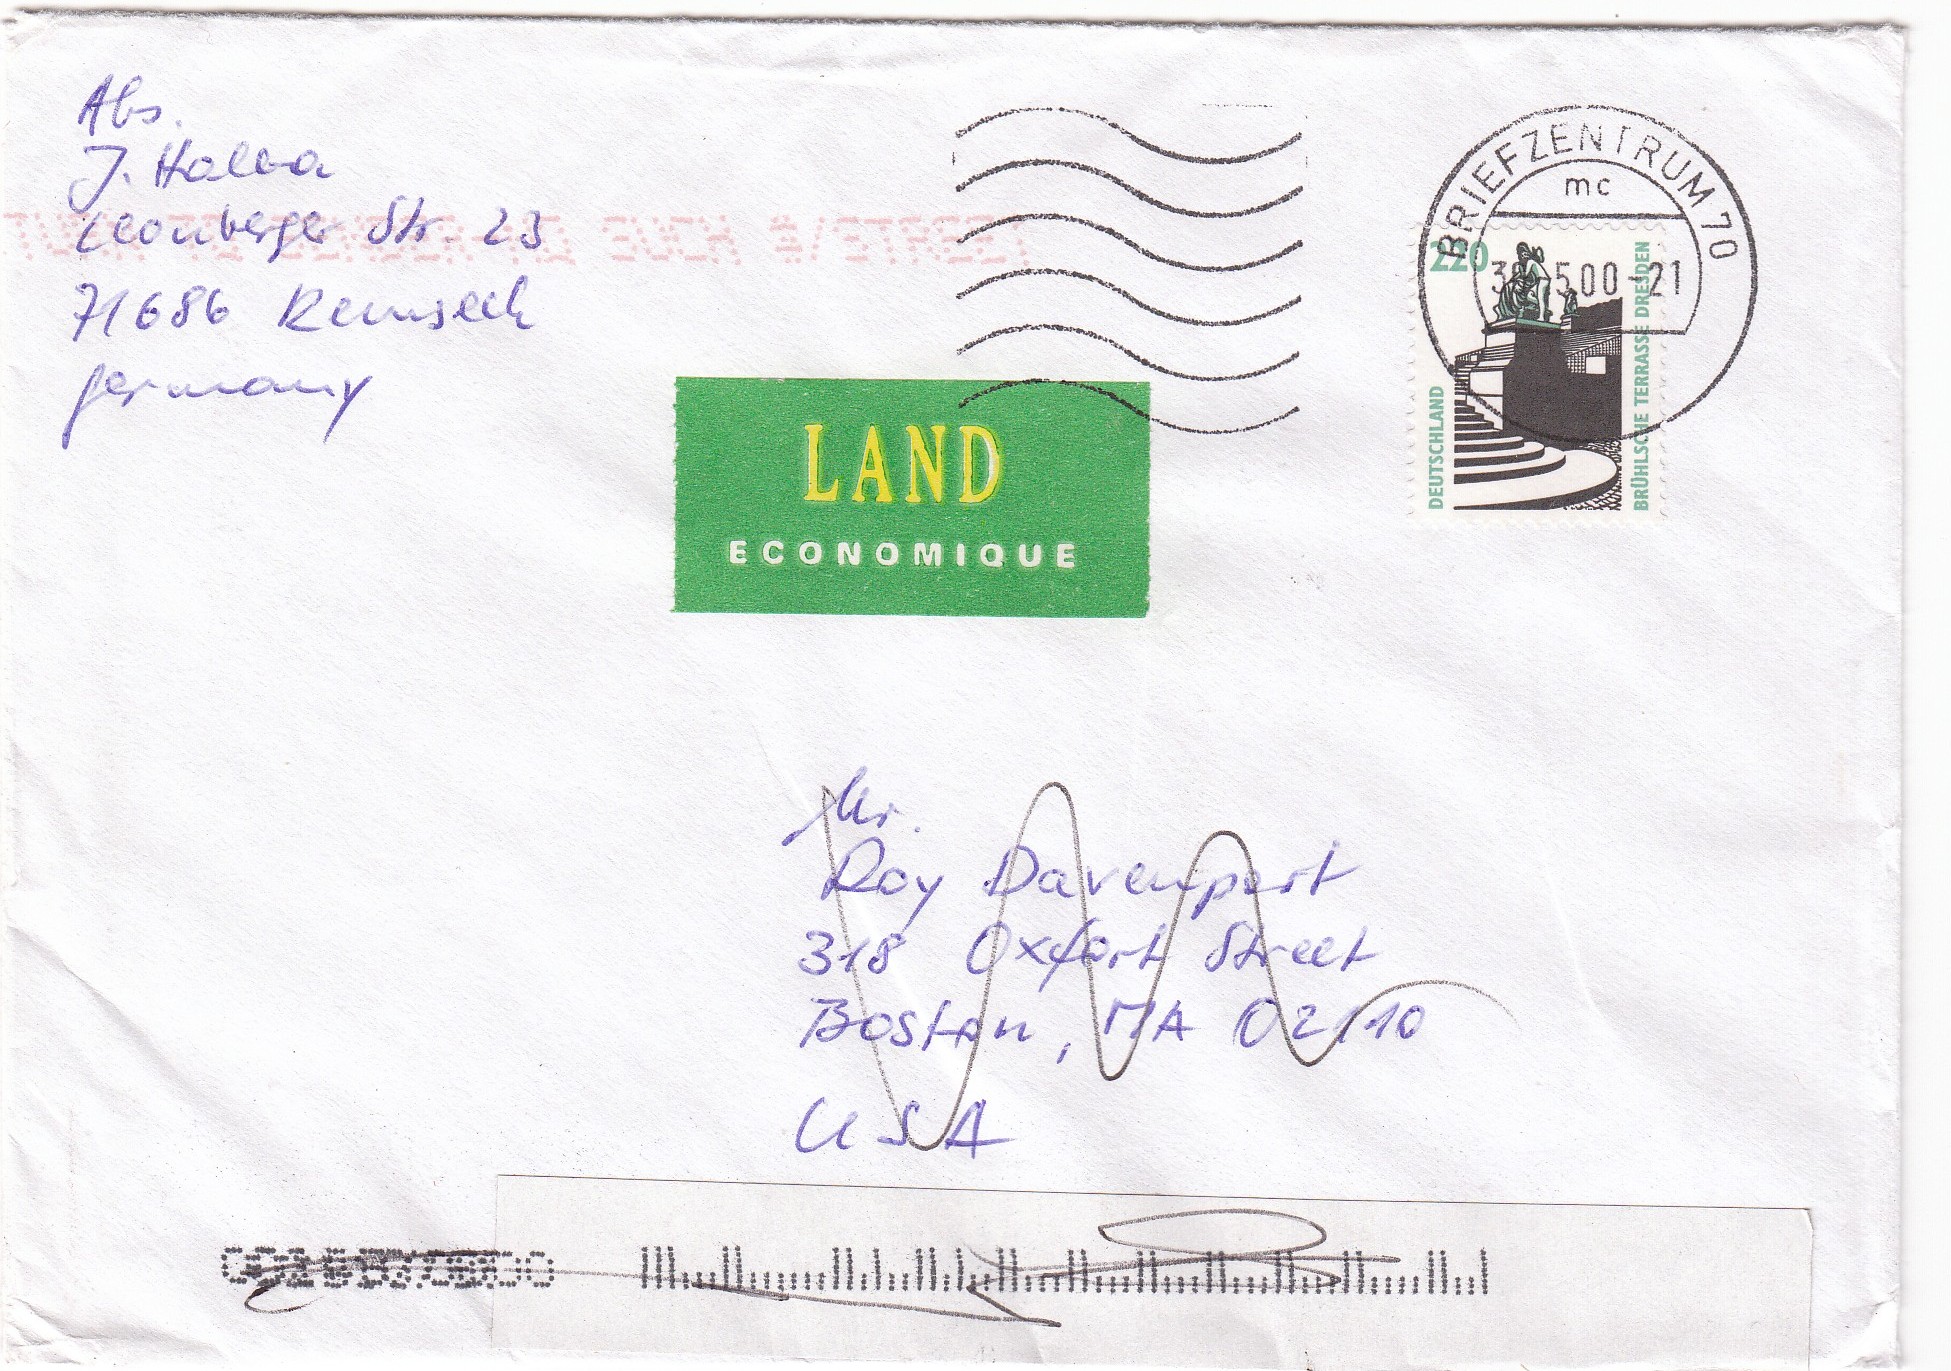 Abs.
J. Halba
Leonberger Str. 23
71686 Remseck
Germany
BRIEFZENTRUM 70
mc
5.00-21
220
DEUTSCHLAND
BRÜHLSCHE TERRASSE DRESDEN
LAND
ECONOMIQUE
Mr.
Roy Davenport
318 Oxfort Street
Boston, MA 02110
USA